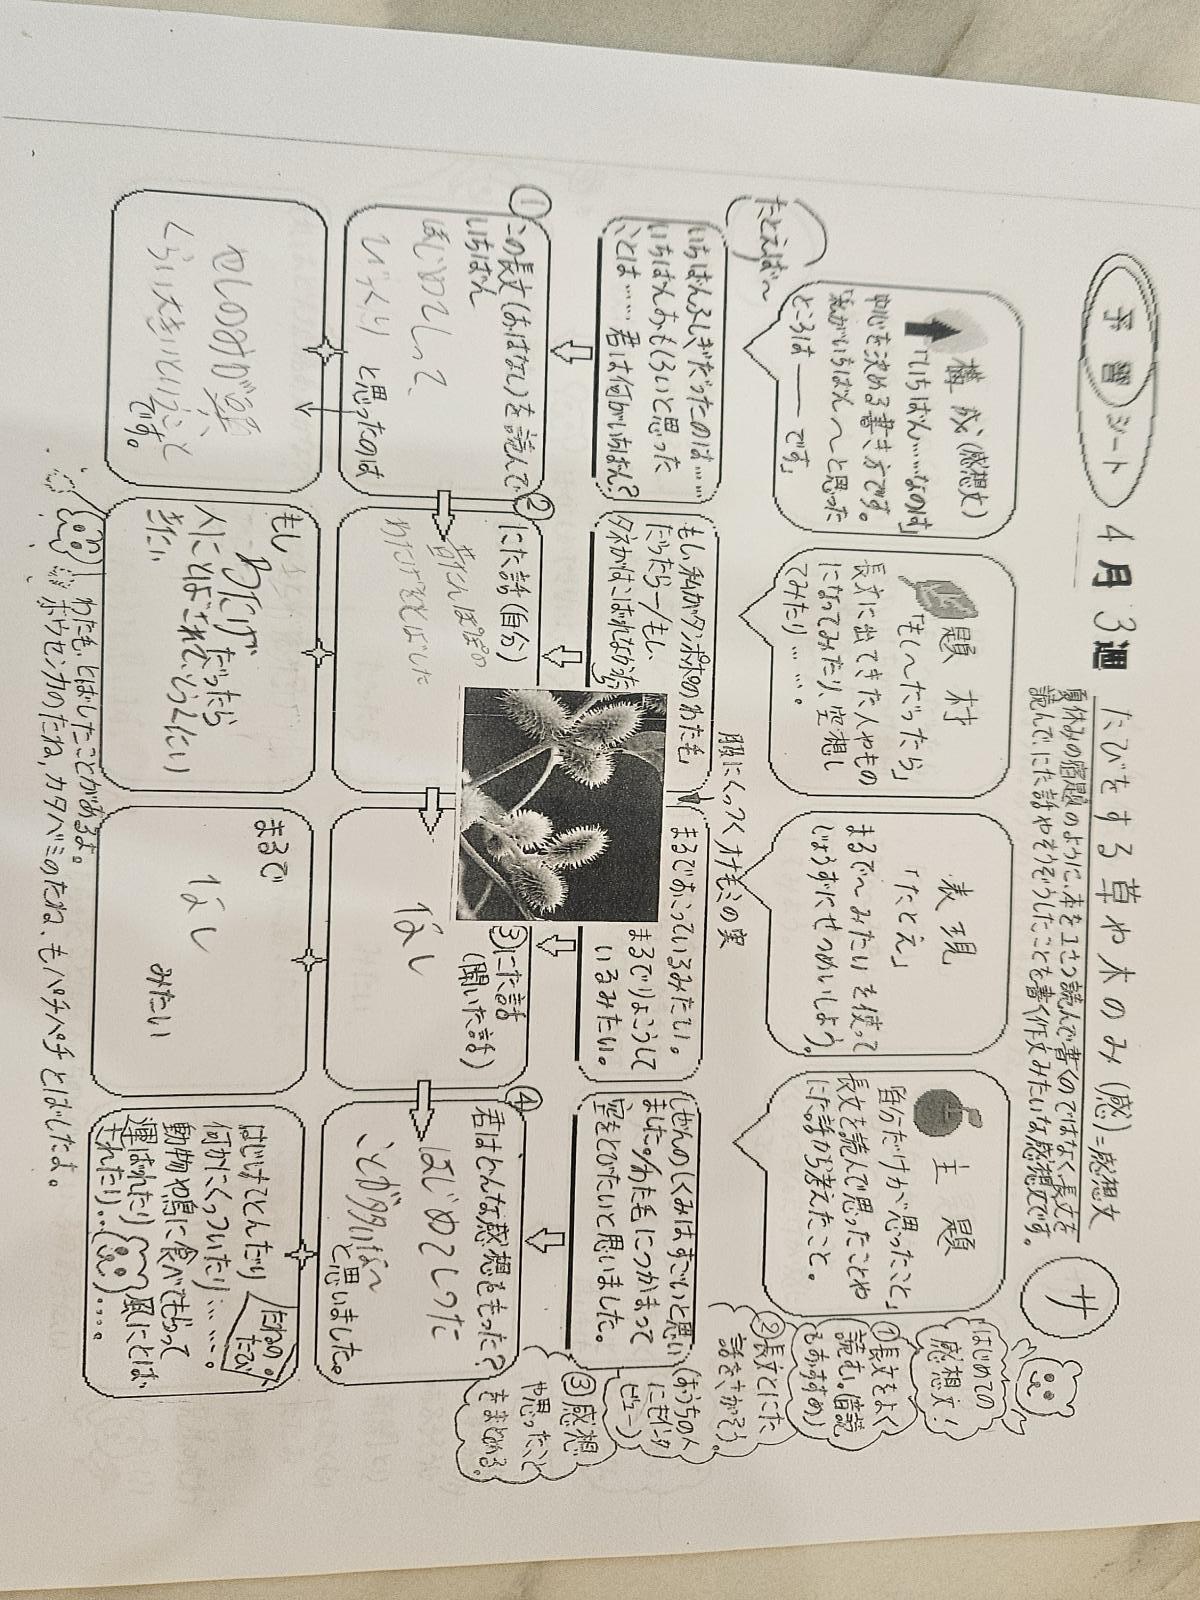 予習シート 4月3週 たびをする草や木のみ(感)=感想文
夏休みの宿題のように、本を1さつ読んで書くのではなく長文を
読んでにた話やそうぞうしたことも書く作文みたいな感想文です。
サ
はじめての
感想文!
①長文をよく
読む。(音読
もおすすめ)
②長文とにた
話をさがそう。
(おうちの人
にインタ
ビュー)
③感想
や思ったこと
をまとめる。
構成(感想文)
「いちばん……なのは」
中心を決める書き方です。
「私がいちばん〜と思った
ところは――です」
題材
「も〜だったら」
長文に出てきた人やもの
になってみたり、空想し
てみたり……。
表現
「たとえ」
まるで〜みたいを使って
じょうずにせつめいしよう。
主題
「自分だけが思ったこと」
長文を読んで思ったことや
にた話から考えたこと。
たとえば〜
いちばんふしぎだったのは……
いちばんおもしろいと思った
ことは……君は何がいちばん?
もし私がタンポポのわた毛
だったら―/もし、
タネがはこばれなかったら
服にくっつくオナモミの実
まるでおこっているみたい。
まるでりょこうして
いるみたい。
しぜんのしくみはすごいと思い
ました。/わた毛につかまって
空をとびたいと思いました。
①この長文(おはなし)を読んで
いちばん
はじめてしって
びっくり と思ったのは
②にた話(自分)
昔たんぽぽの
わたげをとばした
③にた話
(聞いた話)
なし
④君はどんな感想をもった?
はじめてしった
ことが多いな〜
と思いました。
やしのみが頭
くらい大きいということ
です。
もし
わたげだったら
人にとばされてとうくに
いきたい
まるで
なし
みたい
たねの
たび
はじけてとんだり
何かにくっついたり……。
動物や鳥に食べてもらって
運ばれたり 風にとば
されたり……。
わた毛、とばしたことがあるよ。
ホウセンカのたね、カタバミのたね、もパチパチとばしたよ。